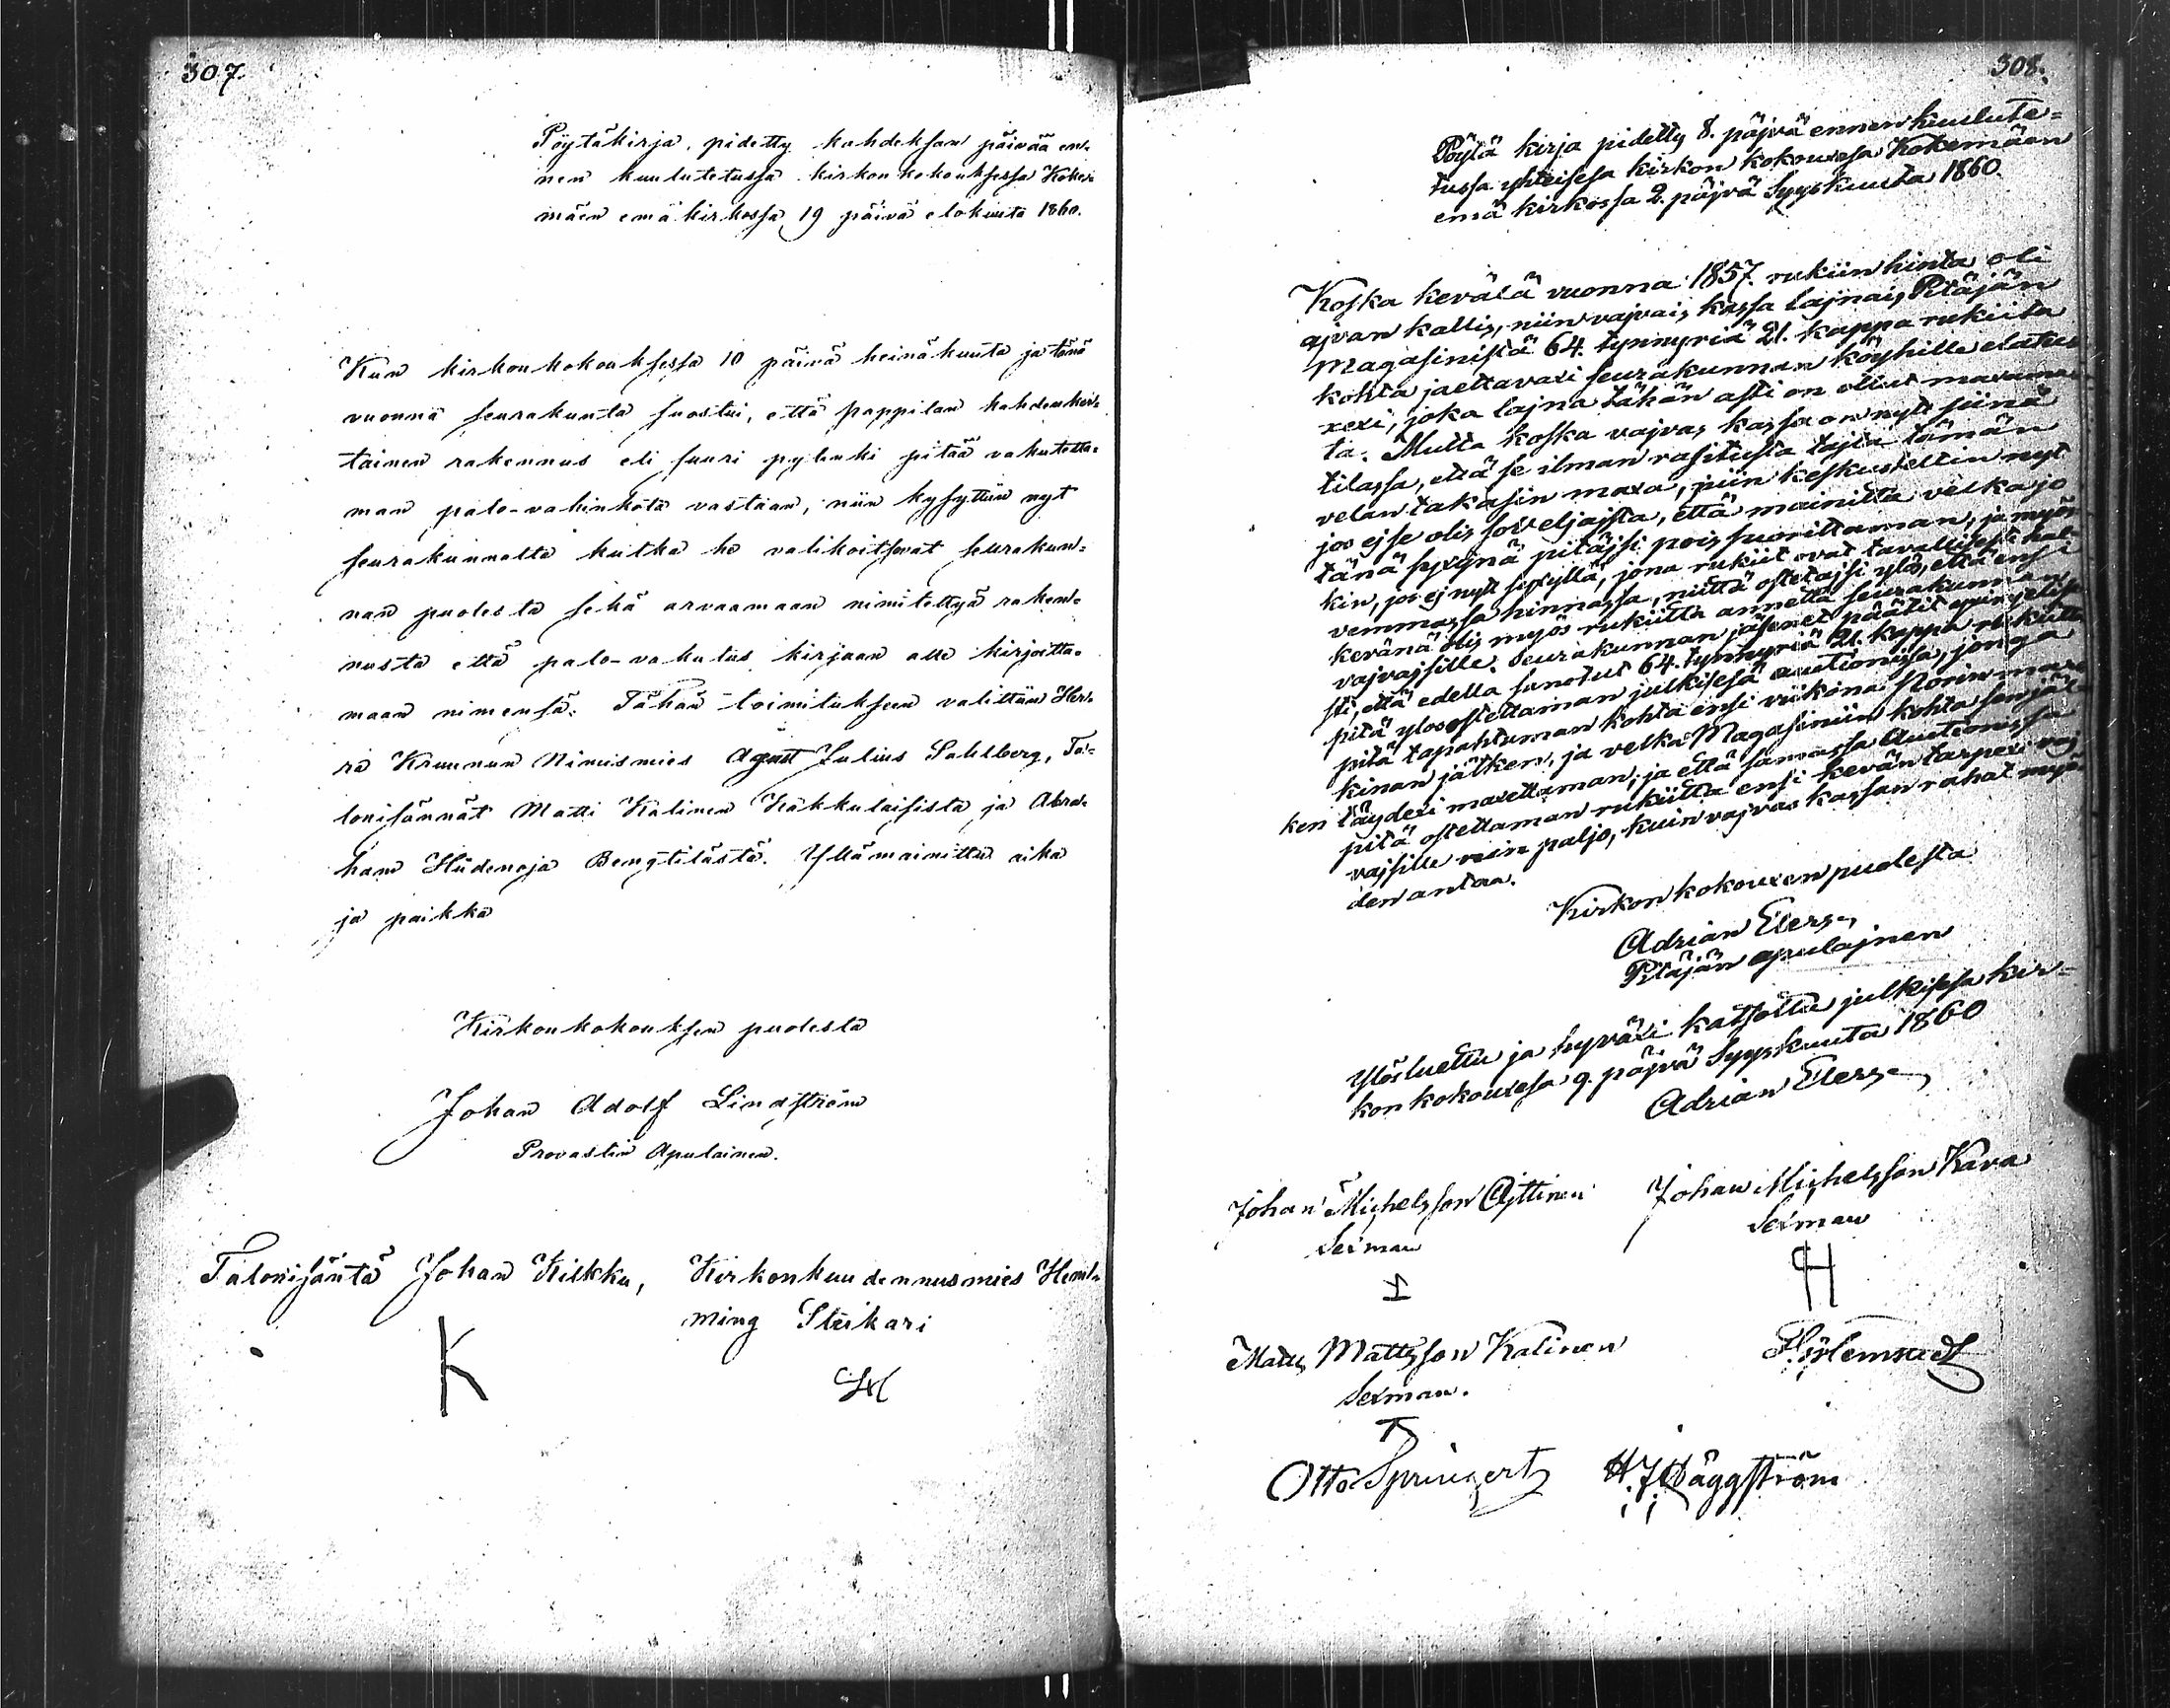 307.
Pöytäkirja, pidetty kahdeksan päivää en-
nen kuulutetussa kirkonkokouksessa Koke-
mäen emäkirkossa 19 päivä elokuuta 1860.
Kun kirkonkokouksessa 10 päivä heinäkuuta ja tänä
vuonna seurakunta suostui, että pappilan kahdenker-
tainen rakennus eli suuri pytinki pitää vakutetta-
man palo-vahinkota vastaan, niin kysyttiin nyt
seurakunnalta kutka he valikoitsevat seurakun-
nan puolesta sekä arvaamaan nimitettyä raken-
nusta että palo-vakutus kirjaan alle kirjoitta-
maan nimensä. Tähän toimitukseen valittiin Her-
ra Kruunun Nimismies Agust Julius Sahlberg, Ta-
lonisännät Matti Kalinen Käkkulaisista ja Abra-
ham Hiidenoja Bengtilästä. Yllämainittu aika
ja paikka
Kirkonkokouksen puolesta
Johan Adolf Lindström
Provastin Apulainen.
Talonisäntä Johan Kilkku, Kirkonkuudennusmies Hem-
ming Steikari
K
308.
Pöytä kirja pidetty 8. päjvä ennen kuulute-
tussa yhteisesa kirkon kokouxesa Kokemäen
emä kirkossa 2. päjvä Syyskuuta 1860.
Koska kevälä vuonna 1857. rukiin hinta oli
ajvan kallis, niin vajvais kassa lajnais Pitäjän
Magasinistä 64. tynnyriä 21. kappa rukiita
kohta jaettavaxi seurakunnan köyhille elatu
xexi, joka lajna tähän asti on ollut maxama
ta. Mutta koska vajvas kassa on nyt siinä
tilassa, että se ilman rasitusta tajta tämän
velan takasin maxa, niin keskusteltin nyt
jos ej se olis soveljajsta, että mainittu velka jo
tänä syxynä pitäjsi pois suorittaman, ja myös
kin, jos ej nyt syxyllä, jona rukiit ovat tavallisesti hal-
vemmassa hinnassa, niittä ostetajsi ylös, että ensi
kevänä olis myös rukiitta annetta seurakunnan
vajvajsille. Seurakunnan jäsenet päätit
sti, että edellä sanotut 64. tynnyriä 21. kappa rukiitta
pitä ylösostettaman julkisesa auctionissa, jonga
pitä tapahtuman kohta ensi viikona Norin mar
kinan jälken, ja velka Magasiniin kohta senjäl
ken täydexi maxettaman, ja että samassa Auctionissa
pitä ostettaman rukiitta ensi kevän tarpexi vaj
vajsille niin paljo, kuin vajvas kassan rahat myö
den antaa.
Kirkon kokouxen puolesta
Adrian Elers
Pitäjän apulajnen
Ylösluettu ja hyväxi katsottu julkisesa kir-
kon kokouxesa 9. päjvä Syyskuuta 1860
Adrian Elers
Johan Michelsson Ojttinen Johan Michelsson Kara
Sexman Sexman
Matts Mattsson Kalinen
Sexman.
Otto H. J. Häggström